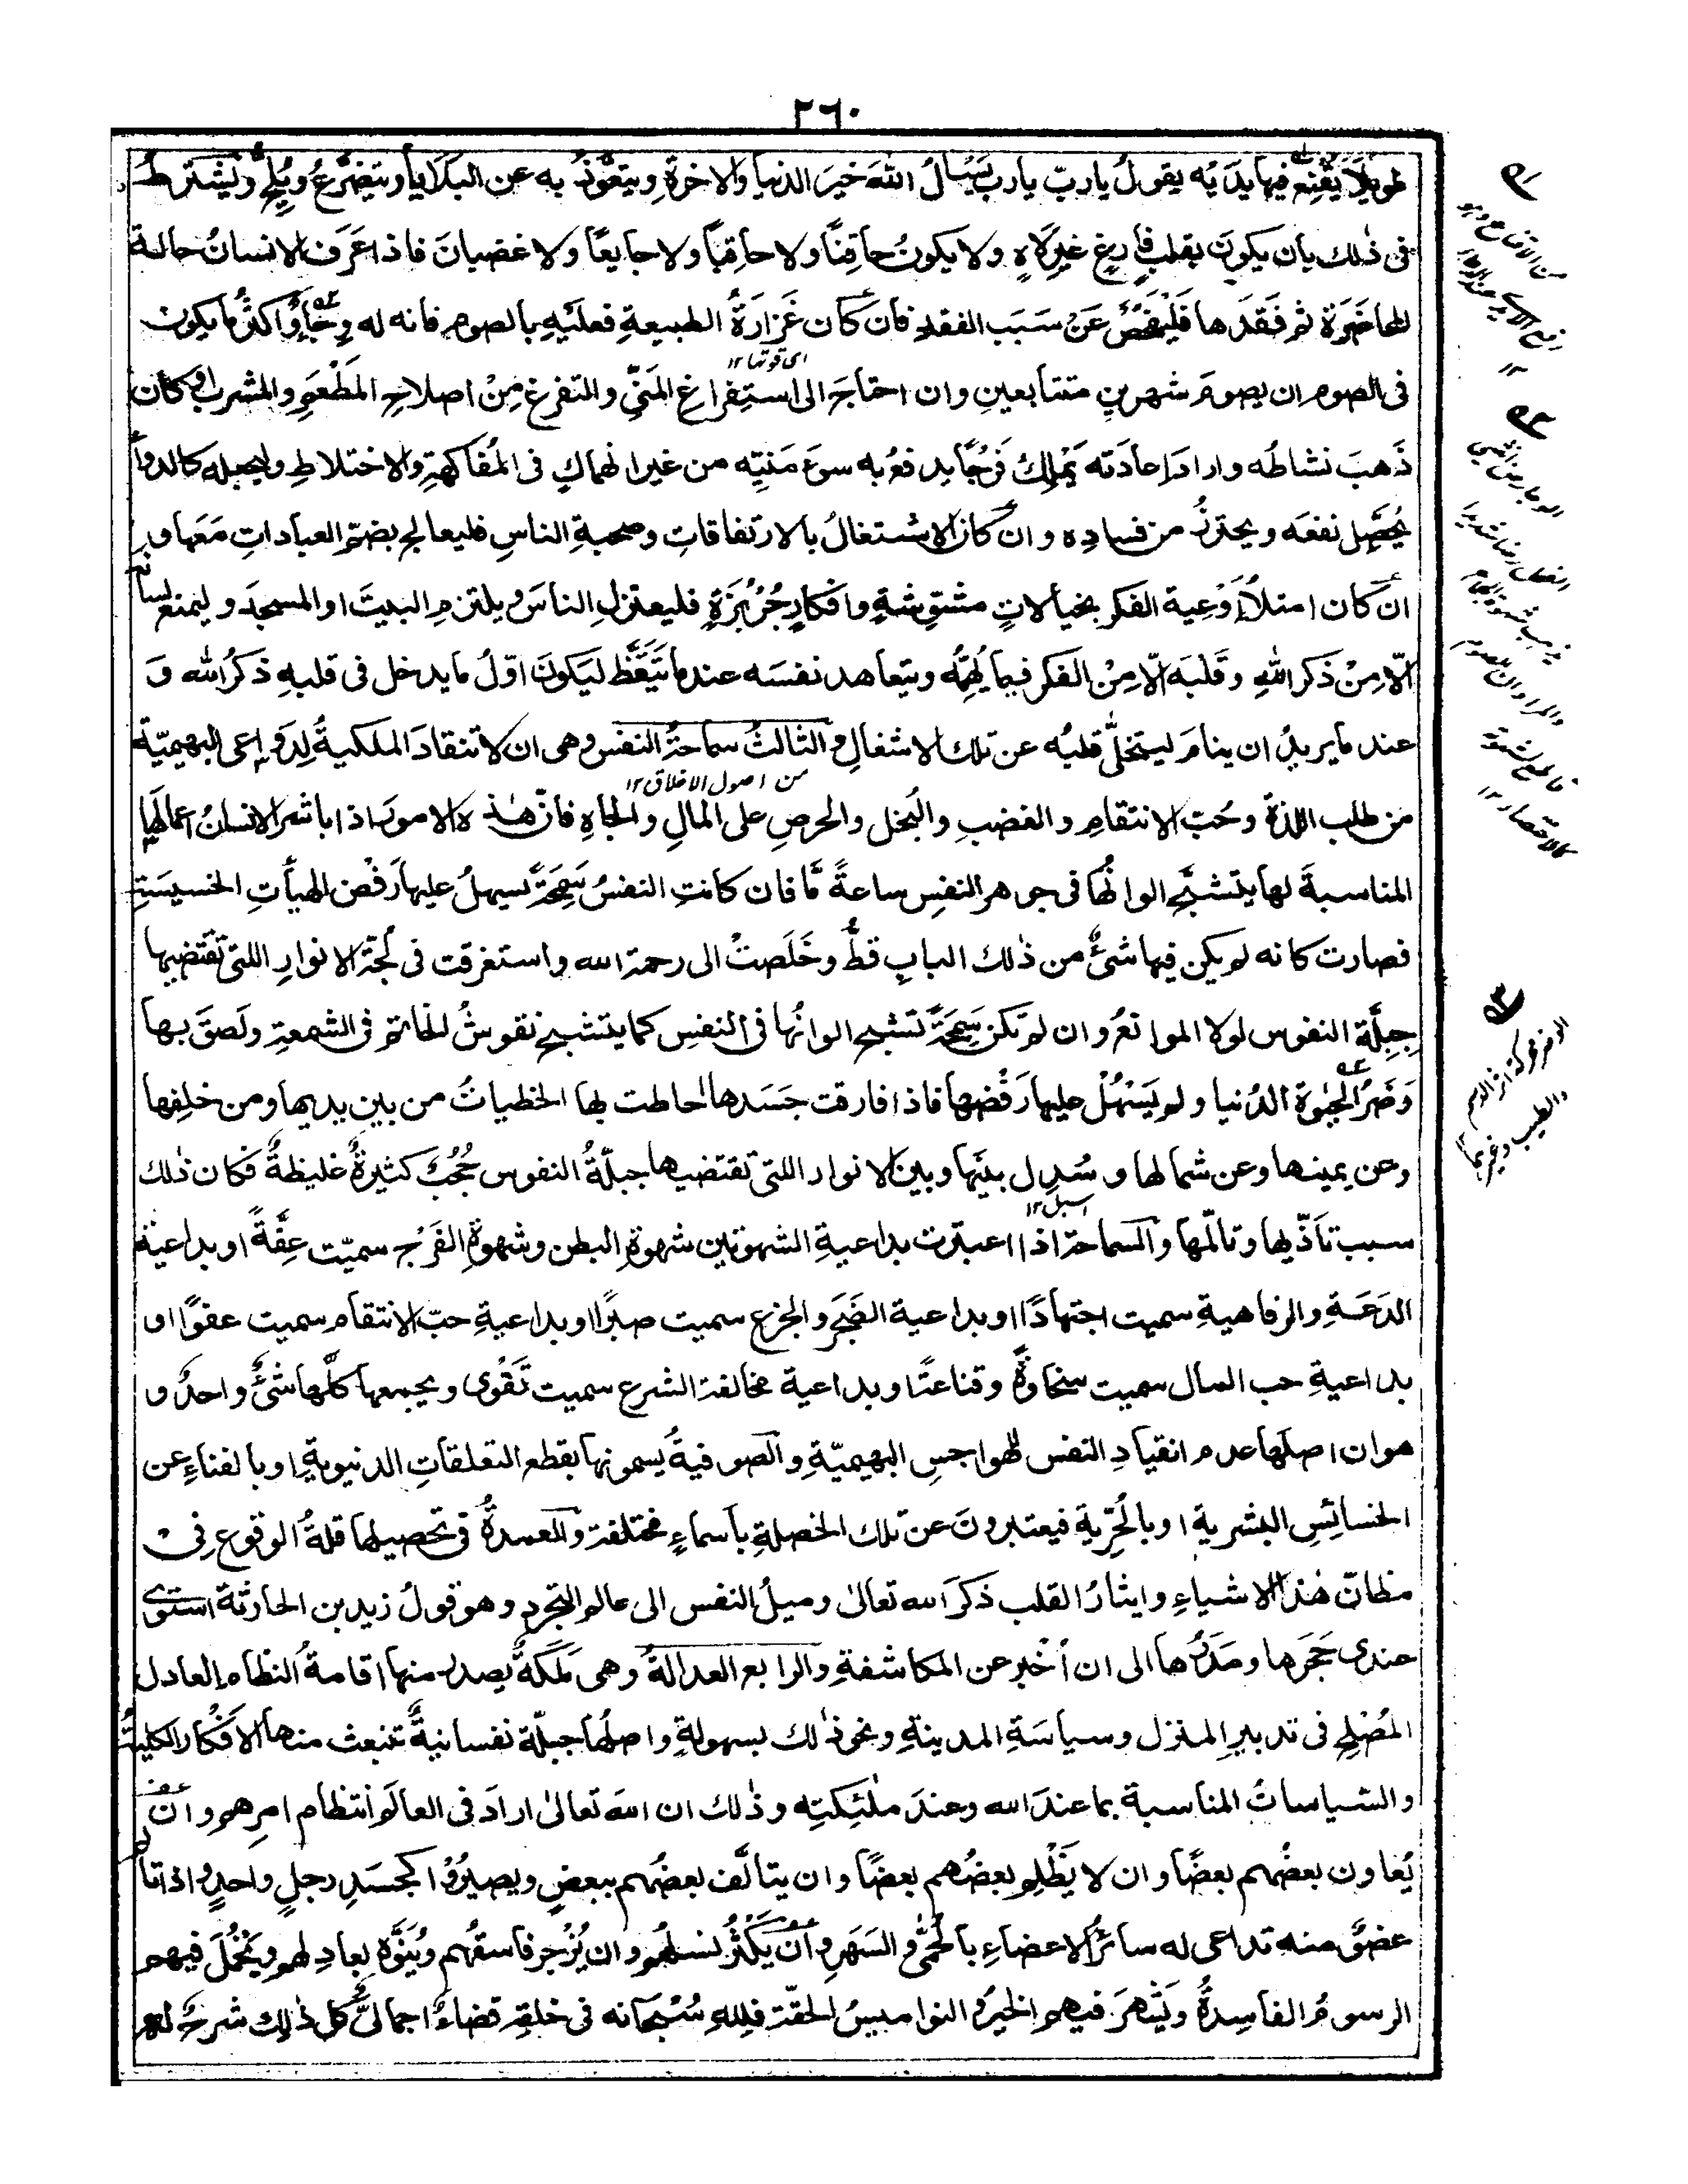 ٢٦٠
طويلا يقنع فيها يديه يقول يا ربّ يا رب يسأل الله خير الدنيا والاخرة ويتعوّذ به عن البلايا ويتضرّع ويلحّ ويشترط
فى ذٰلك بان يكون بقلب فارغ غير لاهٍ ولا يكون حاقنًا ولا حاقبًا ولا جايعًا ولا غضبان فاذا عرف الانسان حالة
المحاضرة ثم فقدها فليفحص عن سبب الفقد فان كان غزارة الطبيعة فعليه بالصوم فانه له وجاء واكثر ما يكون
اى قوتها ١٢
فى الصوم ان يصوم شهرين متتابعين وان احتاج الى استفراغ المنىّ والتفرغ من اصلاح المطعم والمشرب او كان
ذهب نشاطه واراد اعادته يملك فرجًا يدفع به سوء منيّه من غير انهماك فى المفاكهة والاختلاط وليجعله كالدواء
يحصّل نفعه ويحترز من فساده وان كان الاشتغال بالارتفاقات وصحبة الناس فليعالج بضمّ العبادات معها و
ان كان امتلاء اوعية الفكر بخيالات مشوّشة وافكار جربزة فليعتزل الناس ويلتزم البيت او المسجد وليمنع لسانه
الّا من ذكر الله وقلبه الّا من الفكر فيما يهمّه ويتعاهد نفسه عندما يتيقّظ ليكون اوّل ما يدخل فى قلبه ذكر الله و
عند ما يريد ان ينام ليتخلّى قلبه عن تلك الاشغال والثالث سماحة النفس وهى ان لا تنقاد الملكية لدواعى البهيميّة
من اصول الاخلاق ١٢
من طلب اللذة وحبّ الانتقام والغضب والبخل والحرص على المال والجاه فانّ هٰذه الامور اذا باشر الانسان اعمالها
المناسبة لها يتشبّح الوانها فى جوهر النفس ساعةً مّا فان كانت النفس سمحةً يسهل عليها رفض الهيأت الخسيسة
فصارت كانه لم يكن فيها شىء من ذٰلك الباب قطّ وخلصت الى رحمة الله واستغرقت فى لجّة الانوار اللتى تقتضيها
جبلّة النفوس لولا الموانع وان لم تكن سمحةً تتشبح الوانها فى النفس كما يتشبح نقوش الخاتم فى الشمعة ولصق بها
وضر الحيوة الدنيا ولم يسهل عليها رفضها فاذا فارقت جسدها احاطت بها الخطيات من بين يديها ومن خلفها
وعن يمينها وعن شمالها وسدل بينها وبين الانوار اللتى تقتضيها جبلّة النفوس حجب كثيرة غليظة فكان ذٰلك
اسبل ١٢
سبب تاذّيها وتألّمها والسماحة اذا اعتبرت بداعية الشهوتين شهوة البطن وشهوة الفرج سميّت عفّةً او بداعية
الدعة والرفاهية سميت اجتهادًا او بداعية الضجر والجزع سميت صبرًا او بداعية حبّ الانتقام سميت عفوًا او
بداعية حب المال سميت سخاوةً وقناعةً او بداعية مخالفة الشرع سميت تقوى ويجمعها كلّها شىء واحد و
هو ان اصلها عدم انقياد النفس لهواجس البهيميّة والصوفية يسمونها بقطع التعلقات الدنيوية او بالفناء عن
الخسائس البشرية او بالحرّية فيعتبرون عن تلك الخصلة بأسماء مختلفة والعمدة فى تحصيلها قلة الوقوع فى
مظانّ هٰذه الاشياء وايثار القلب ذكر الله تعالىٰ وميل النفس الى عالم التجرد وهو قول زيد بن الحارثة استوىٰ
عندى حجرها ومدرها الى ان أخبر عن المكاشفة والرابع العدالة وهى ملكة يصدر منها اقامة النظام العادل
المصلح فى تدبير المنزل وسياسة المدينة ونحو ذٰلك بسهولة واصلها جبلّة نفسانية تنبعث منها الافكار الكلية
والسياسات المناسبة بما عند الله وعند ملٰئكته وذٰلك ان الله تعالىٰ اراد فى العالم انتظام امرهم وان
يعاون بعضهم بعضًا وان لا يظلم بعضهم بعضًا وان يتألّف بعضهم ببعض ويصيروا كجسد رجل واحد اذا تألّم
عضو منه تداعى له سائر الاعضاء بالحمّى والسهر وان يكثر نسلهم وان يزجر فاسقهم وينوّه بعادلهم ويخمل فيهم
الرسوم الفاسدة ويشهر فيهم الخير والنواميس الحقّة فلله سبحانه فى خلقه قضاء اجمالىّ كل ذٰلك شرح له